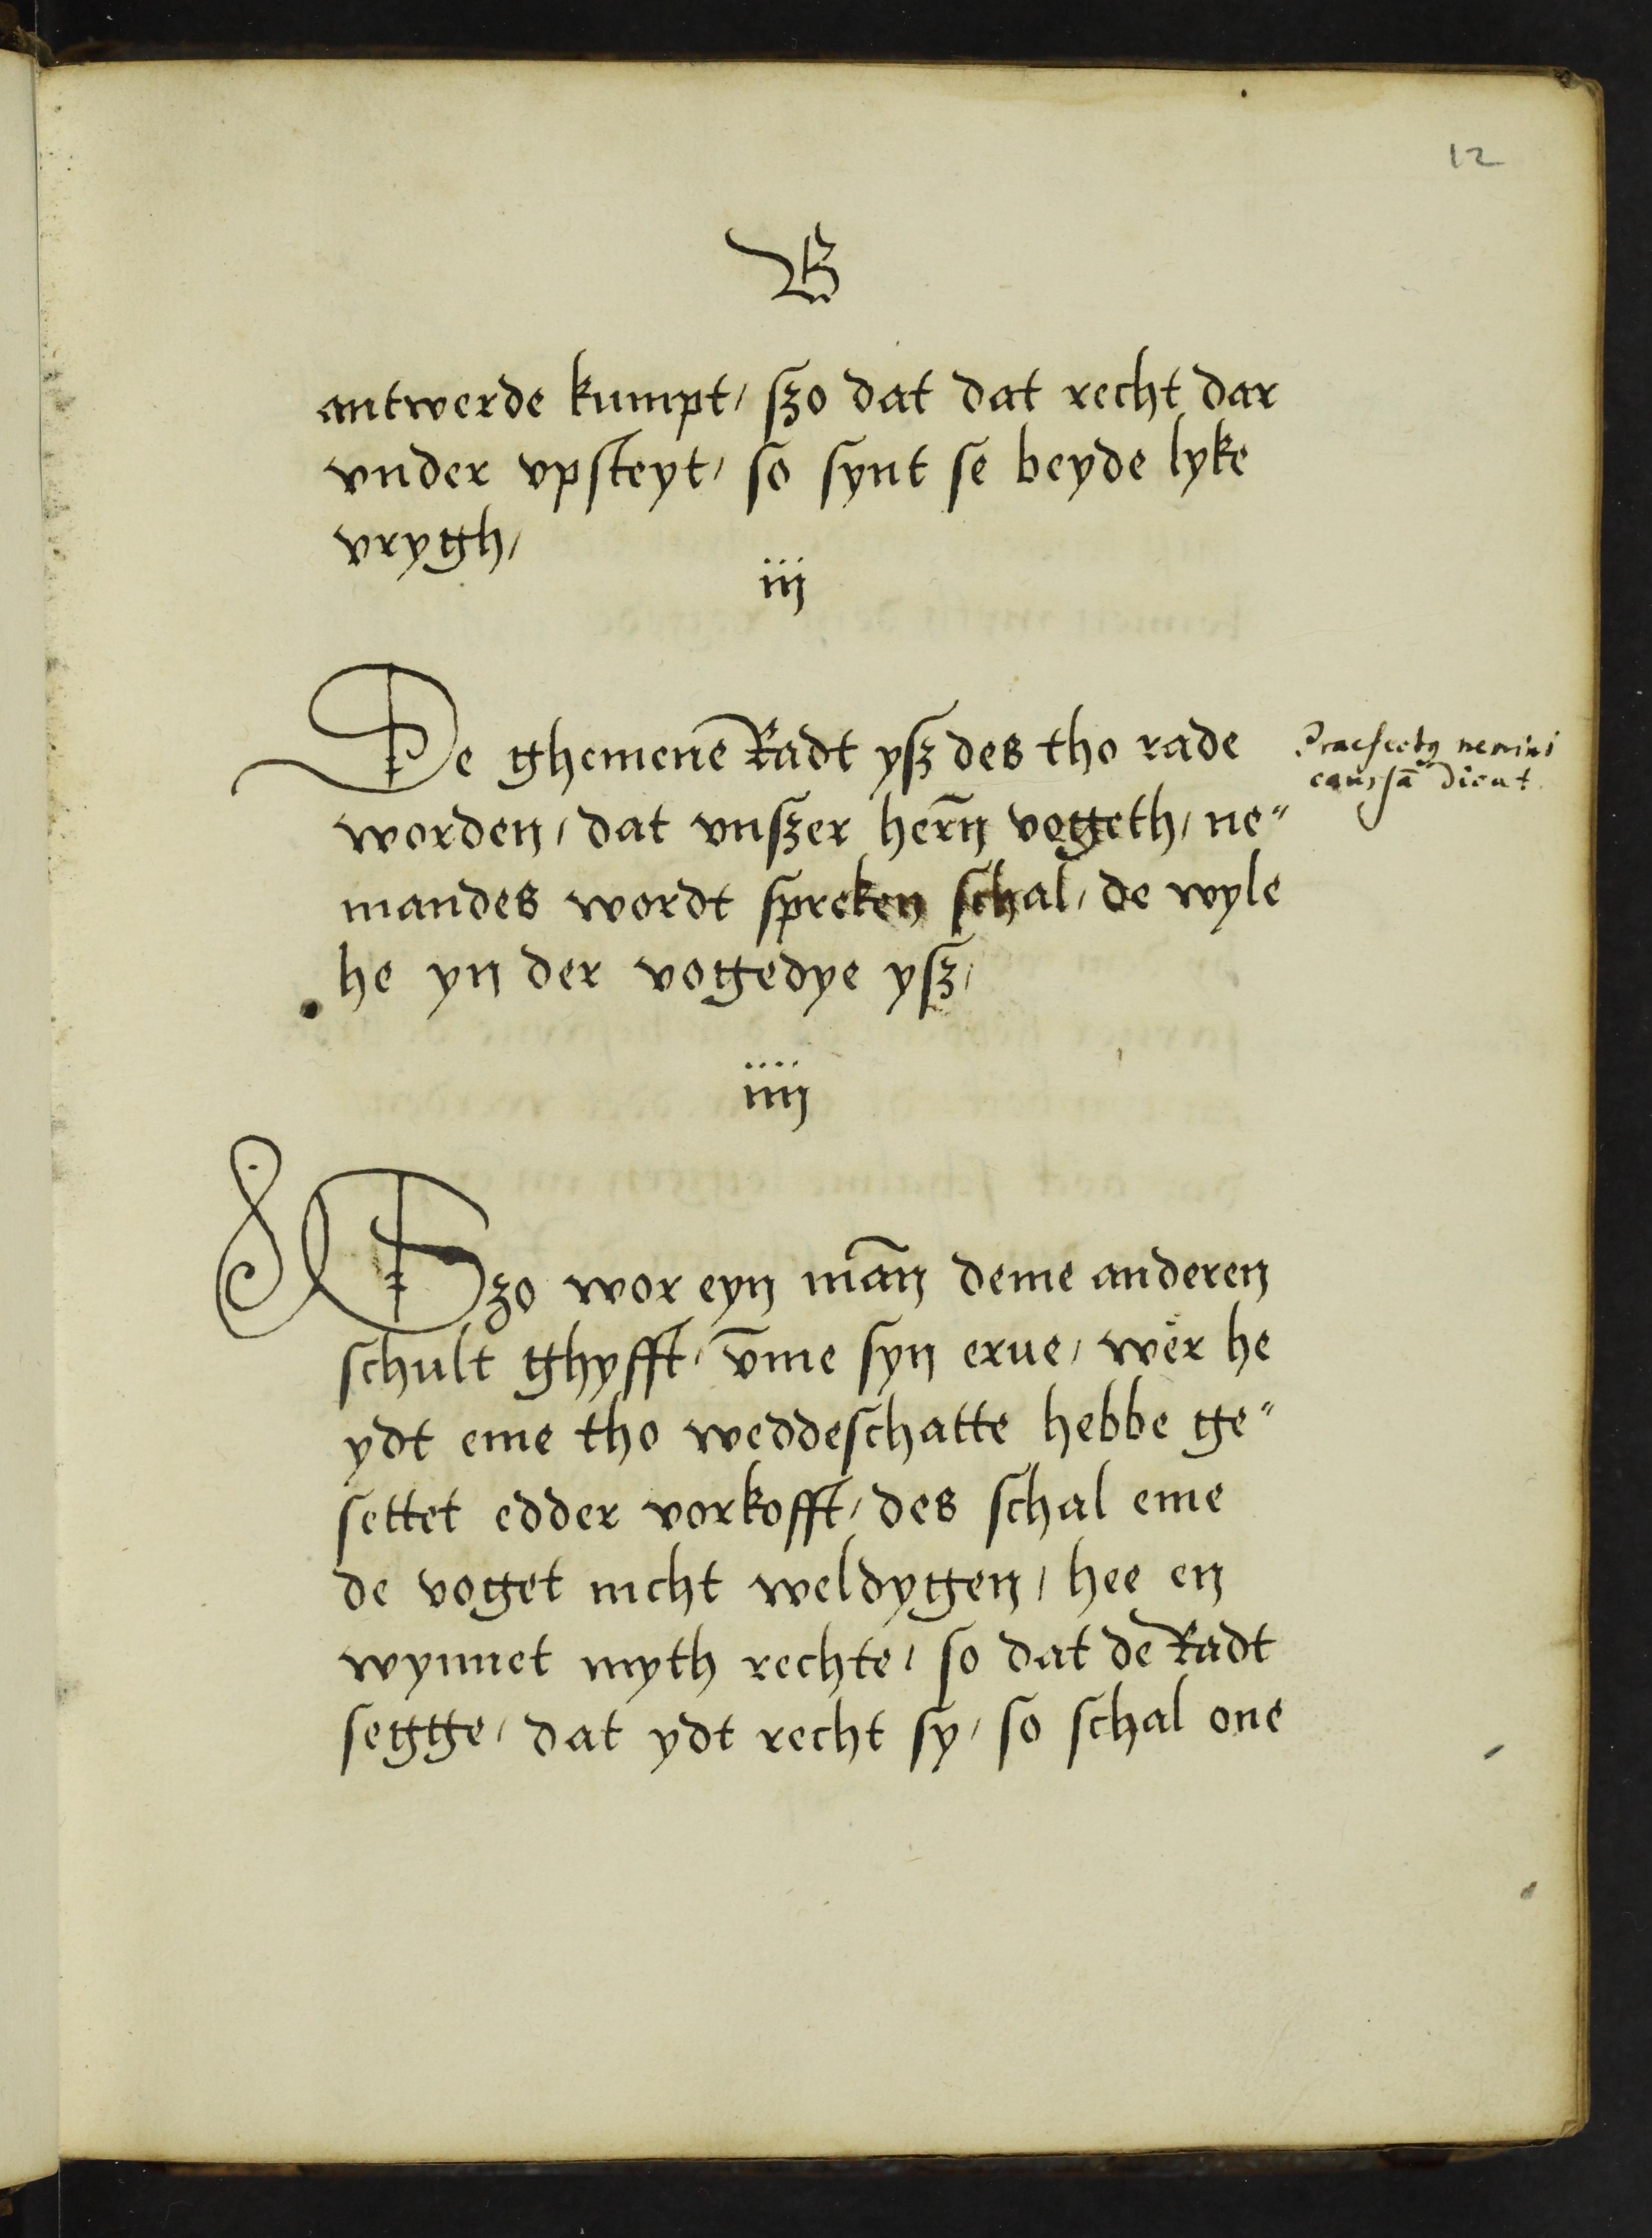 12
B
antwerde kumpt/ szo dat dat recht dar
vnder vpsteyt/ so synt se beyde lyke
vrygh/
iij
De ghemene Radt ysz des tho rade
Praefectꝰ nemini
caussā dicat
worden/ dat vnszer herñ vogeth/ ne"
mandes wordt spreken schal/ de wyle
he yn der vogedye ysz/
iiij
Szo wor eyn mañ deme anderen
schult ghyfft/ v̄me syn erue/ wer he
ydt eme tho weddeschatte hebbe ge"
settet edder vorkofft/ des schal eme
de voget nicht weldygen/ hee en
wynnet myth rechte/ so dat de Radt
segge/ dat ydt recht sy/ so schal one